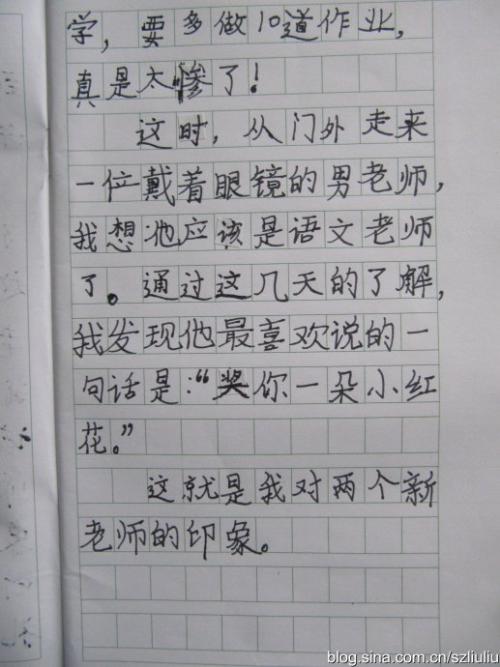 学，要多做10道作业，
真是太惨了！
这时，从门外走来
一位戴着眼镜的男老师，
我想他应该是语文老师
了。通过这几天的了解，
我发现他最喜欢说的一
句话是：“奖你一朵小红
花。”
这就是我对两个新
老师的印象。
blog.sina.com.cn/szliuliu